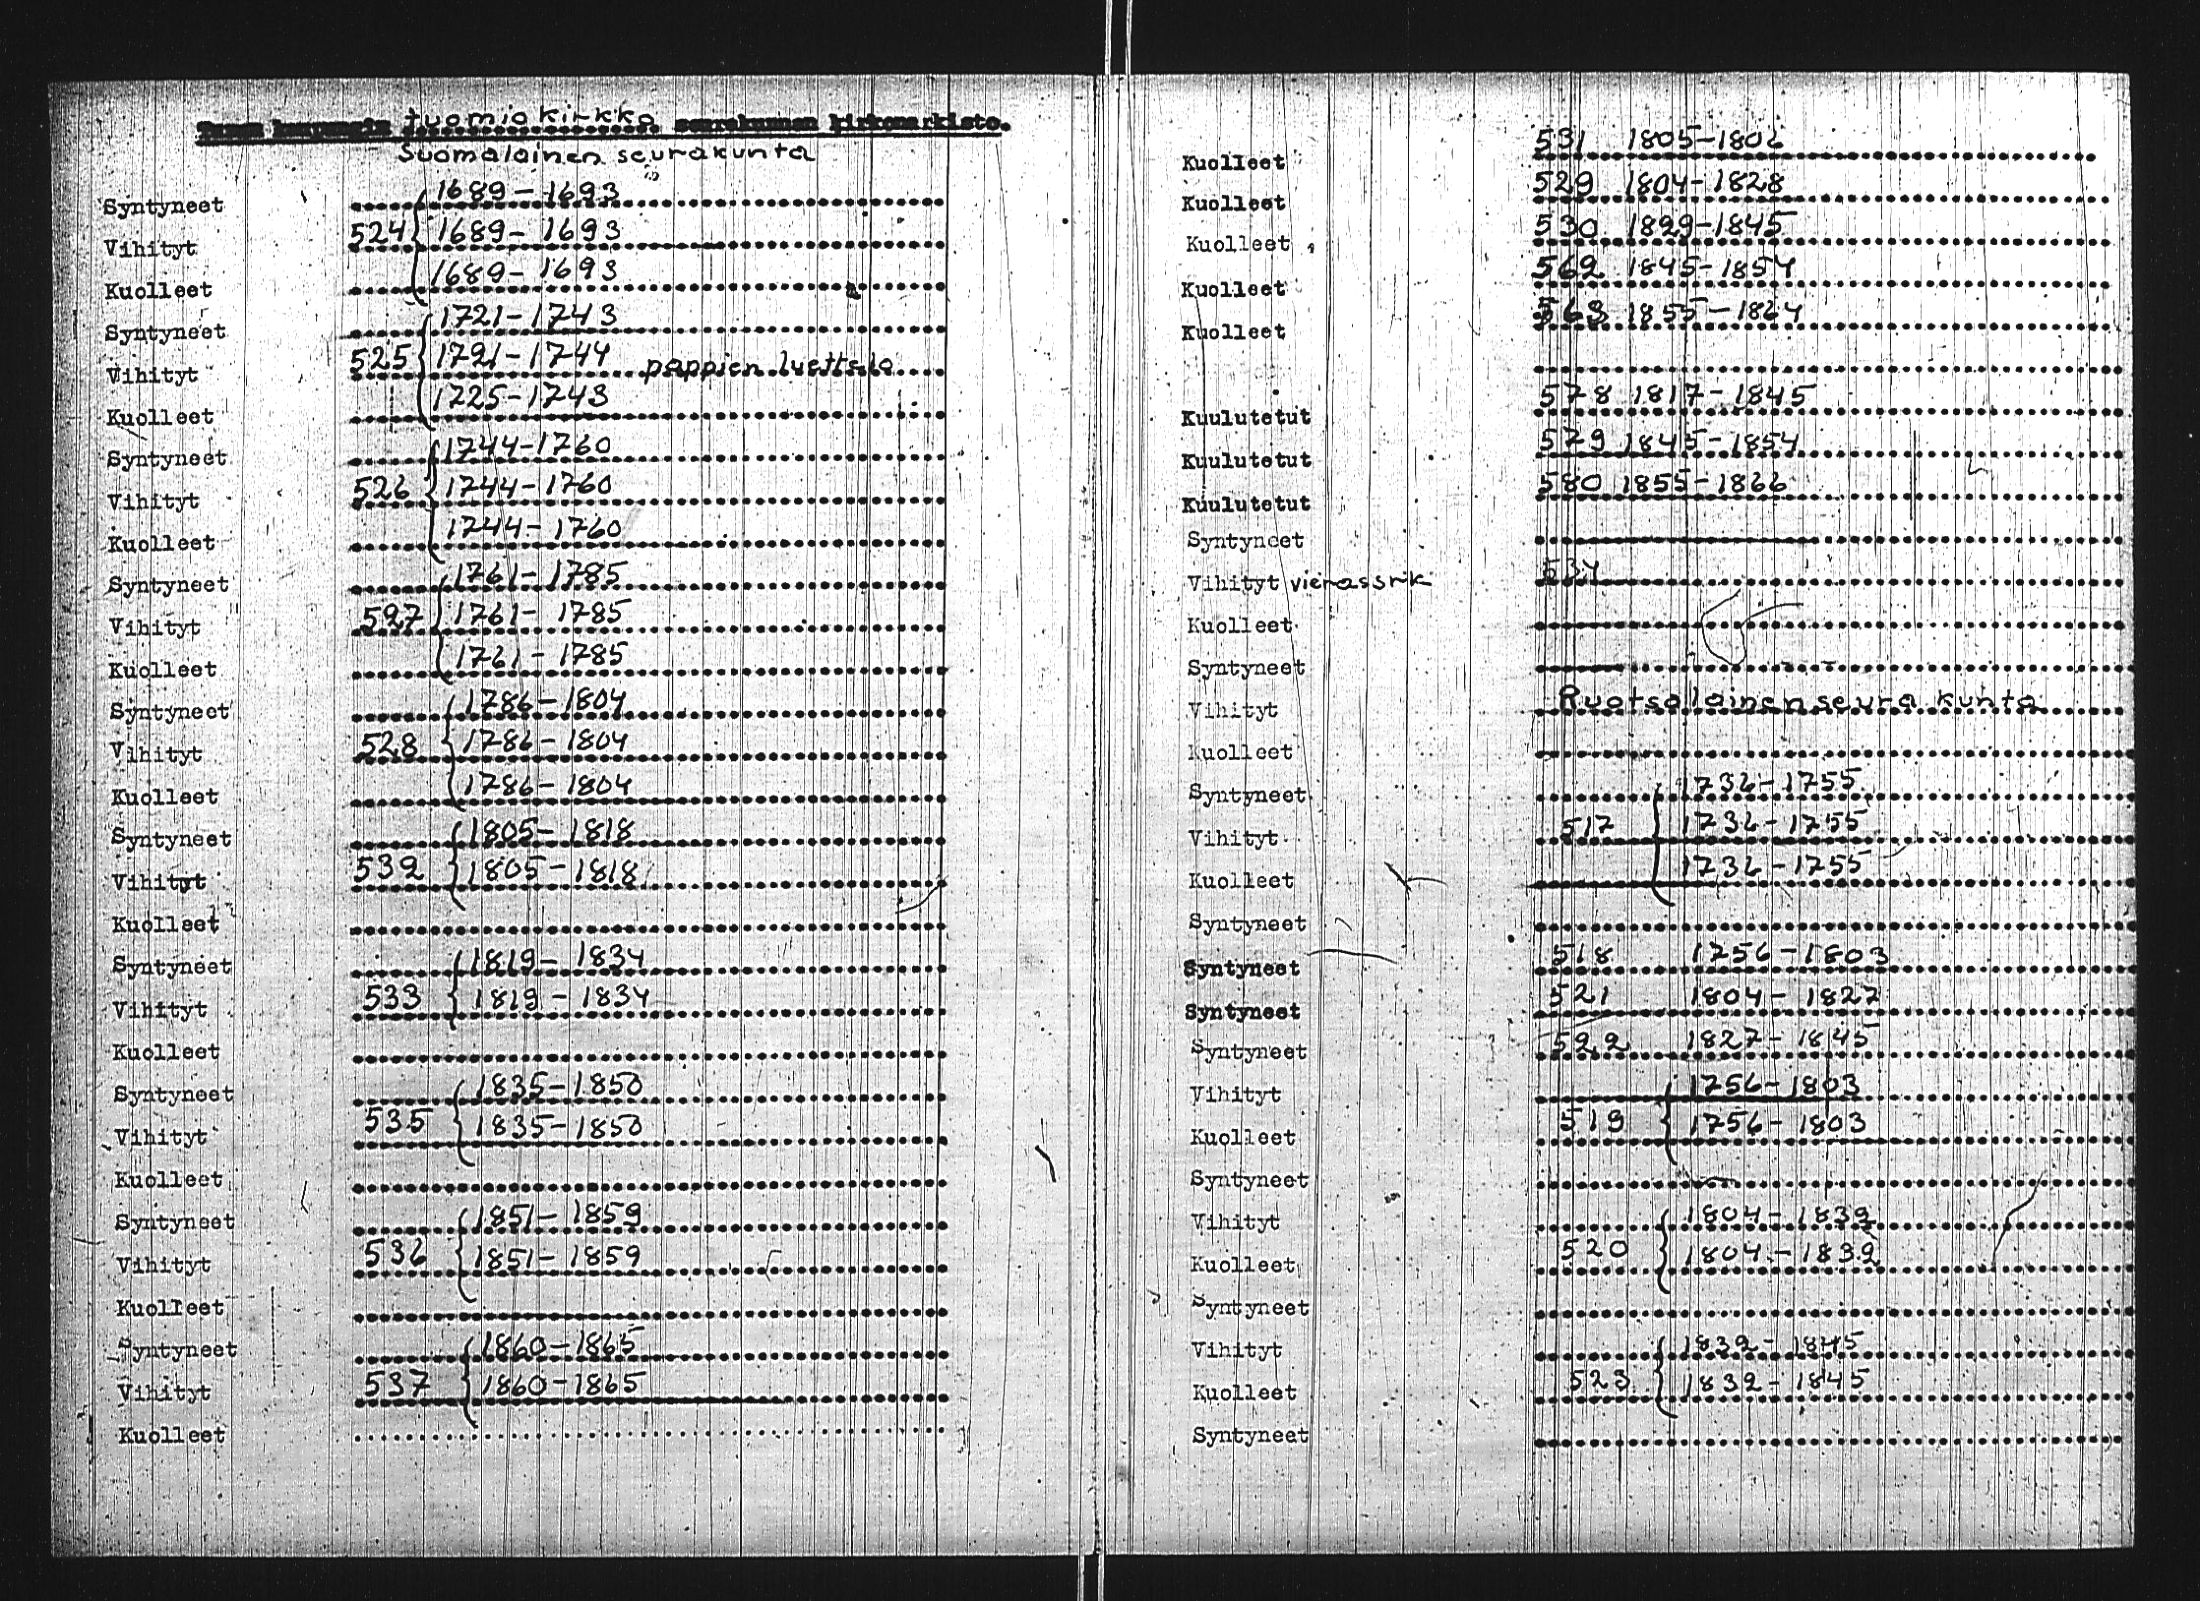 Turun kaupungin tuomiokirkko seurakunnan kirkonarkisto.
Suomalainen seurakunta
Syntyneet 1689-1693
Vihityt 524 1689-1693
Kuolleet 1689-1693
Syntyneet 1721-1743
Vihityt 525 1721-1744 pappien luettelo
Kuolleet 1725-1743
Syntyneet 1744-1760
Vihityt 526 1744-1760
Kuolleet 1744-1760
Syntyneet 1761-1785
Vihityt 527 1761-1785
Kuolleet 1761-1785
Syntyneet 1786-1804
Vihityt 528 1786-1804
Kuolleet 1786-1804
Syntyneet 1805-1818
Vihityt 532 1805-1818
Kuolleet
Syntyneet 1819-1834
Vihityt 533 1819-1834
Kuolleet
Syntyneet 1835-1850
Vihityt 535 1835-1850
Kuolleet
Syntyneet 1851-1859
Vihityt 536 1851-1859
Kuolleet
Syntyneet 1860-1865
Vihityt 537 1860-1865
Kuolleet
Kuolleet 531 1805-1806
Kuolleet 529 1804-1828
Kuolleet 530 1829-1845
Kuolleet 562 1845-1854
Kuolleet 563 1855-1864
Kuulutetut 578 1817-1845
Kuulutetut 579 1845-1854
Kuulutetut 580 1855-1866
Syntyneet
Vihityt vierassrk 534
Kuolleet
Syntyneet
Vihityt Ruotsalainen seurakunta
Kuolleet
Syntyneet 1736-1755
Vihityt 517 1736-1755
Kuolleet 1736-1755
Syntyneet
Syntyneet 518 1756-1803
Syntyneet 521 1804-1827
Syntyneet 522 1827-1845
Vihityt 1756-1803
Kuolleet 519 1756-1803
Syntyneet
Vihityt 1804-1839
Kuolleet 520 1804-1839
Syntyneet
Vihityt 1839-1845
Kuolleet 523 1839-1845
Syntyneet